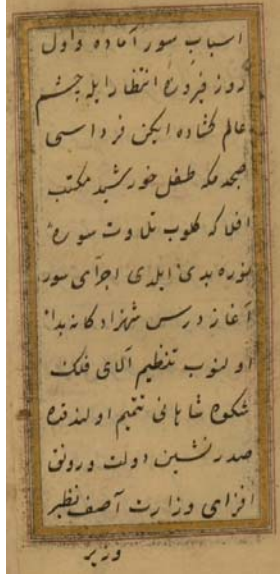 اسباب سور آماده و اول
روز فیروزه انتظار ایله چشم
عالم کشاده ایکن فرداسی
صبحدمکه طفل خورشید مکتب
افلاکه کلوب تلاوت سورهٔ
نوره بدئ ایلدی اجرای سور
آغاز درس شهزادکانه بدأ
اولنوب تنظیم آلای فلک
شکوه شاهانی تتمیم اولندقده
صدرنشین دولت و رونق
افزای وزارت آصف نظیر
وزیر